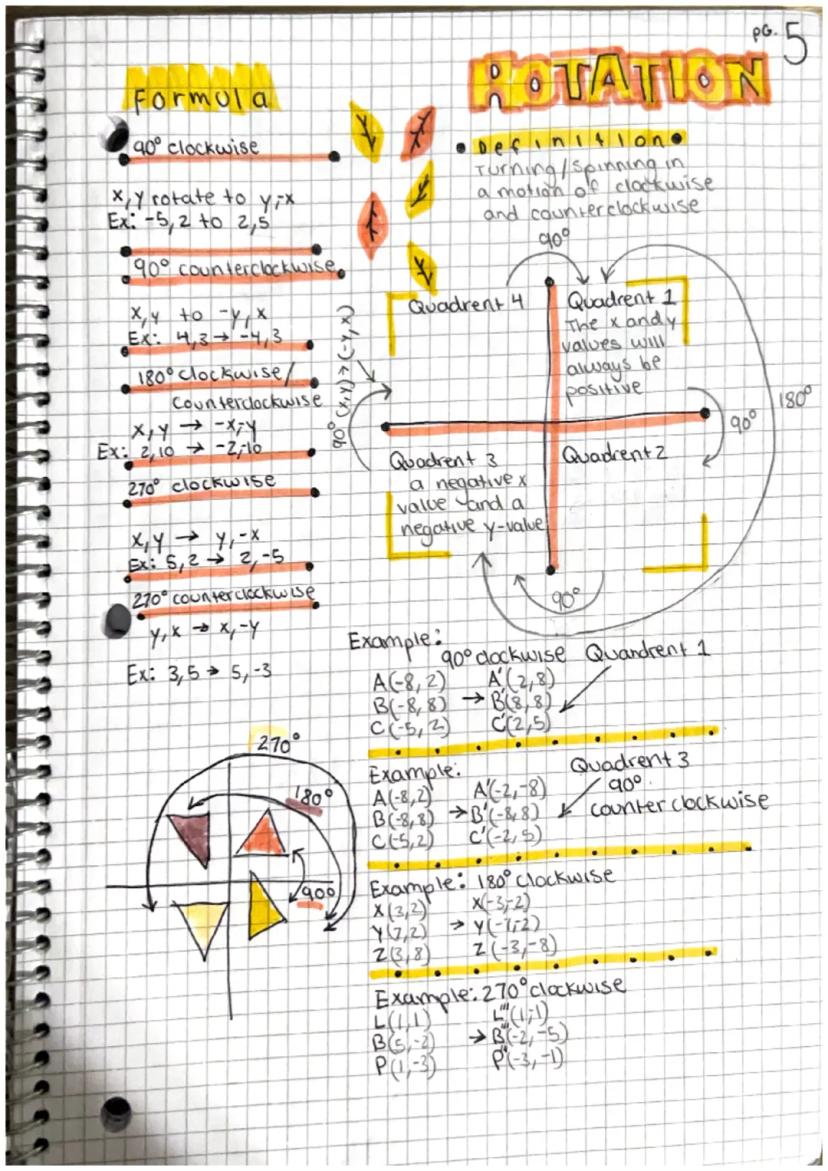 pg. 5
Formula
ROTATION
90° clockwise
x,y rotate to y,-x
Ex: -5,2 to 2,5
90° counterclockwise
x,y to -y,x
Ex: 4,3 → -4,3
180° clockwise/
counterclockwise
x,y → -x,-y
Ex: 2,10 → -2,-10
270° clockwise
x,y → y,-x
Ex: 5,2 → 2,-5
270° counterclockwise
y,x → x,-y
Ex: 3,5 → 5,-3
Definition
Turning/spinning in
a motion of clockwise
and counterclockwise
90°
Quadrent 4
Quadrent 1
The x and y
values will
always be
positive
90° (x,y) → (-y,x)
90°
180°
Quadrent 3
a negative x
value and a
negative y-value
Quadrent 2
90°
Example:
90° clockwise Quandrent 1
A(-8,2) A'(2,8)
B(-8,8) → B'(8,8)
C(-5,2) C'(2,5)
Example:
Quadrent 3
90°
counterclockwise
A(-8,2) A'(-2,-8)
B(-8,8) → B'(-8,8)
C(-5,2) C'(-2,5)
Example: 180° clockwise
X(3,2) X(-3,-2)
Y(7,2) → Y(-7,-2)
Z(3,8) Z(-3,-8)
Example: 270° clockwise
L(1,1) L'''(1,-1)
B(5,-2) → B'''(-2,-5)
P(1,-3) P''(-3,-1)
270°
180°
90°